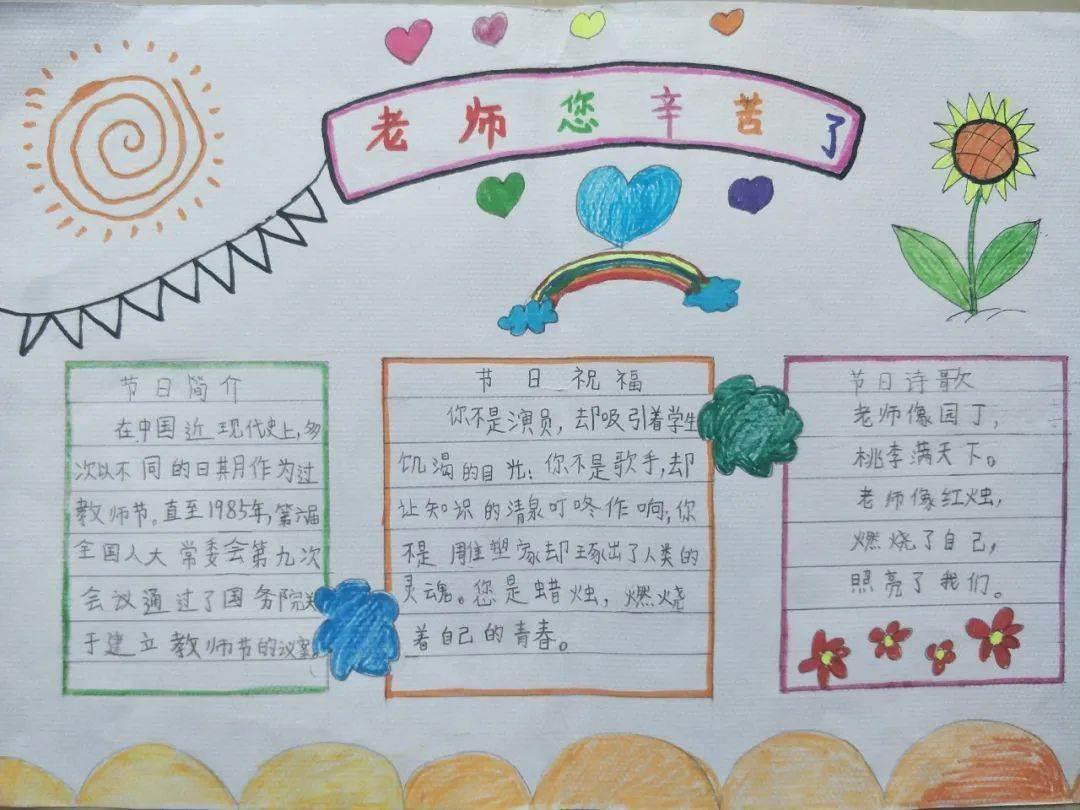 老师您辛苦了
节日简介
在中国近现代史上,多
次以不同的日期作为过
教师节。直至1985年,第六届
全国人大常委会第九次
会议通过了国务院关
于建立教师节的议案。
节日祝福
你不是演员,却吸引着学生
饥渴的目光;你不是歌手,却
让知识的清泉叮咚作响;你
不是雕塑家却琢出了人类的
灵魂。您是蜡烛,燃烧
着自己的青春。
节日诗歌
老师像园丁,
桃李满天下。
老师像红烛,
燃烧了自己,
照亮了我们。